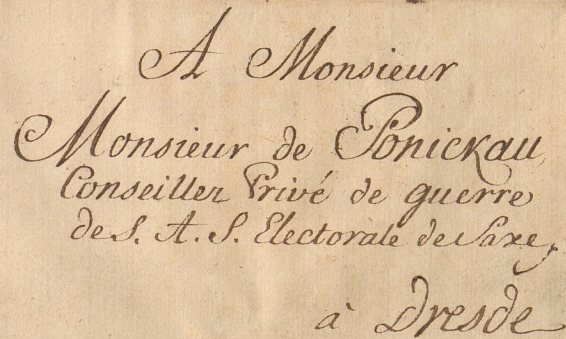 A Monsieur
Monsieur de Ponickau
Conseiller Privé de guerre
de S. A. S. Electorale de Saxe,
à Dresde